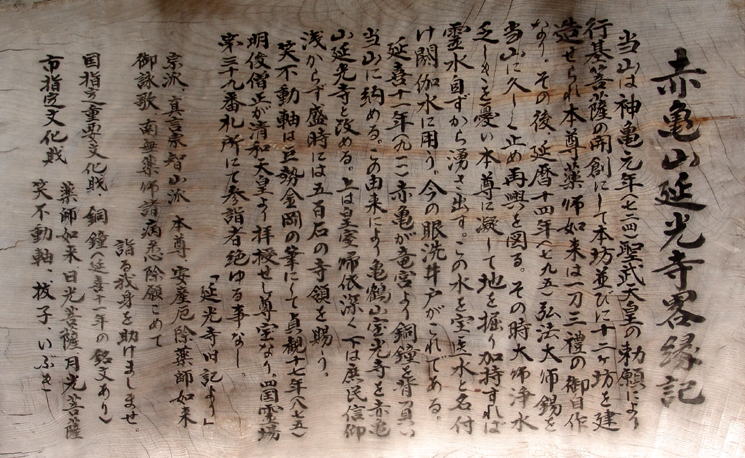 赤亀山延光寺畧縁記
当山は神亀元年(七二四)聖武天皇の勅願により
行基菩薩の開創にして本坊並びに十二ヶ坊を建
造せられ本尊薬師如来は一刀三禮の御自作
なり。その後延暦十四年(七九五)弘法大師錫を
当山に久しく止め再興を図る。その時大師浄水
乏しきを憂い本尊に凝して地を掘り加持すれば
霊水自ずから湧き出す。この水を宝医水と名付
け閼伽水に用う。今の眼洗井戸がこれである。
延喜十一年(九一一)赤亀が竜宮より銅鐘を背に負い
当山に納める。この由来により亀鶴山宝光寺を赤亀
山延光寺と改める。上は皇室帰依深く下は庶民信仰
浅からず盛時には五百石の寺領を賜う。
笑不動軸は巨勢金岡の筆にして貞観十七年(八七五)
明俊僧正が清和天皇より拝授せし尊宝なり。四国霊場
第三十九番札所にて参詣者絶ゆる事なし。
「延光寺旧記より」
宗派、真言宗智山派 本尊 安産厄除薬師如来
御詠歌 南無薬師諸病悉除願こめて
詣る我身を助けましませ。
国指定重要文化財、銅鐘(延喜十一年の銘文あり)
薬師如来日光菩薩月光菩薩
市指定文化財
笑不動軸、払子、いぶき